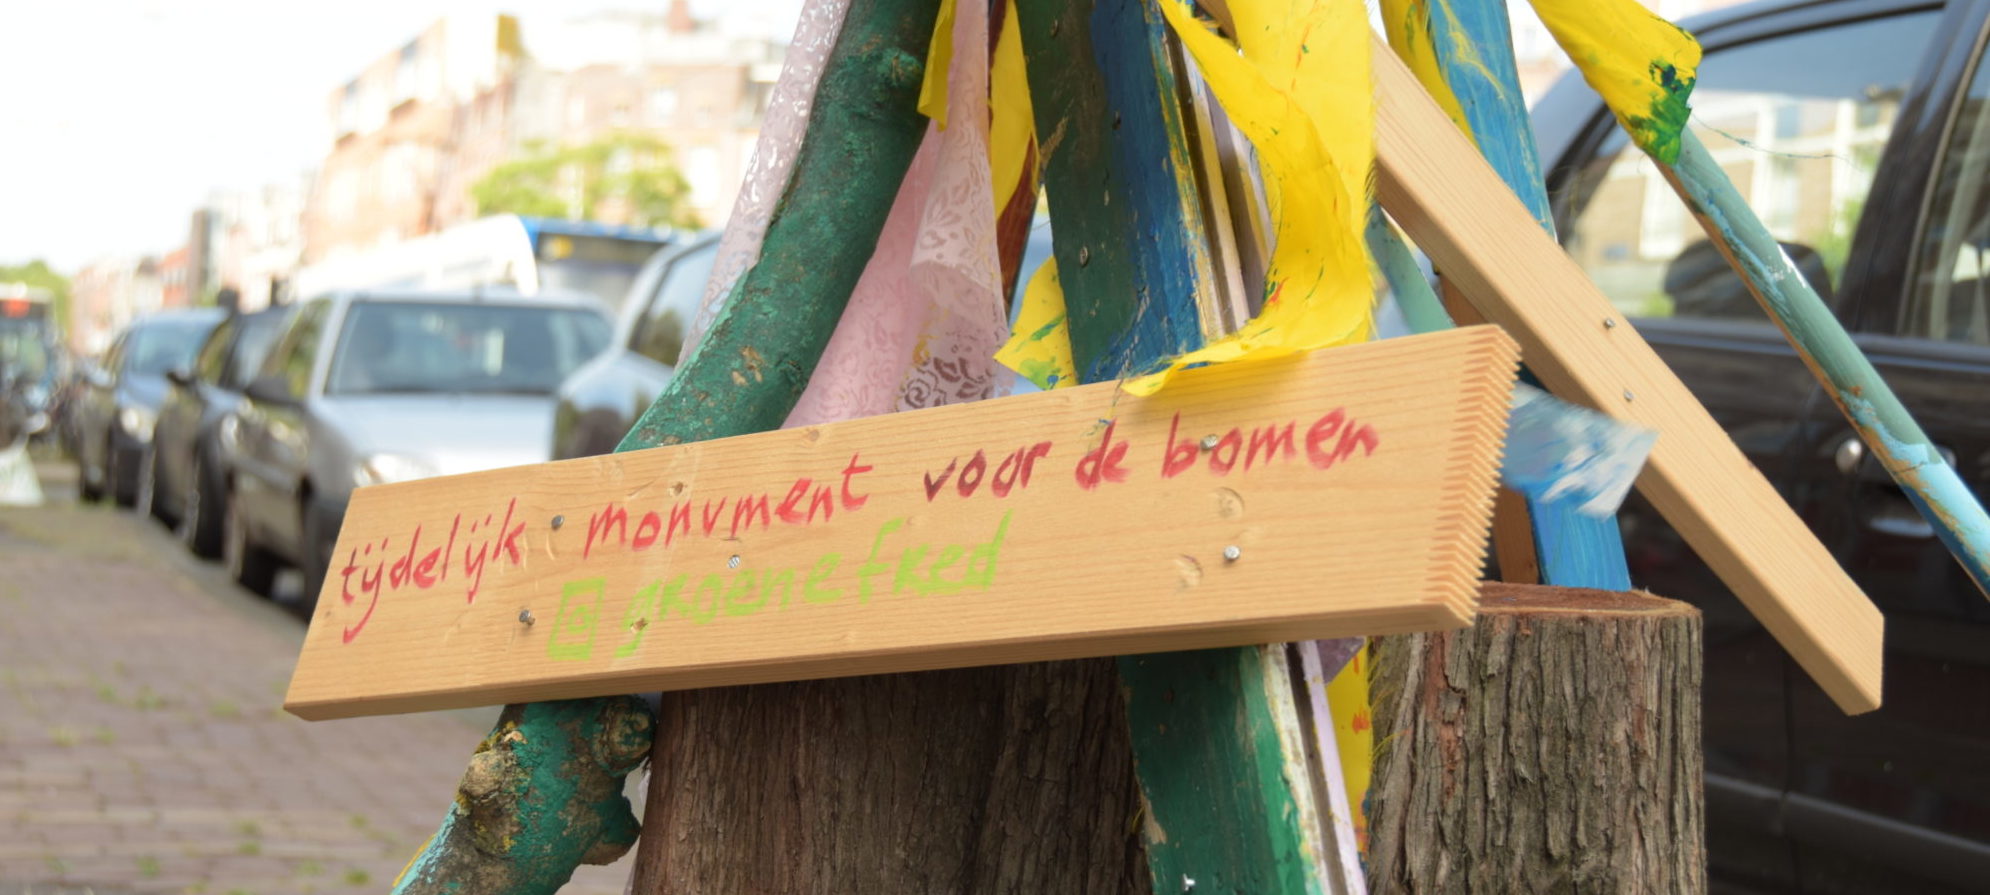 tijdelijk monument voor de bomen
groenefred